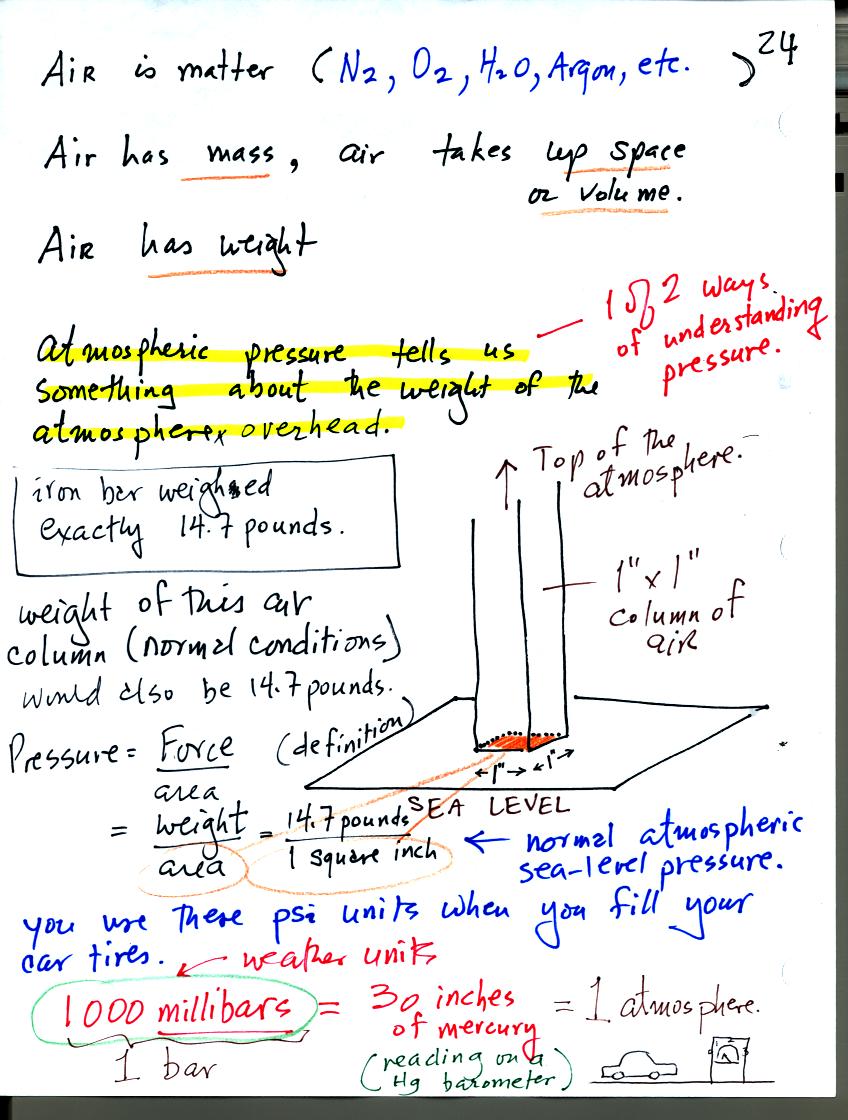 24
AIR is matter (N2, O2, H2O, Argon, etc. )
Air has mass, air takes up space
or volume.
AIR has weight
1 of 2 ways
of understanding
pressure.
atmospheric pressure tells us
something about the weight of the
atmosphere overhead.
Top of the
atmosphere.
iron bar weighed
exactly 14.7 pounds.
1" x 1"
column of
air
weight of this air
column (normal conditions)
would also be 14.7 pounds.
Pressure = Force (definition)
area
1" 1"
SEA LEVEL
= weight = 14.7 pounds
area 1 square inch
← normal atmospheric
sea-level pressure.
you use these psi units when you fill your
car tires.
weather units
1000 millibars = 30 inches
of mercury
= 1 atmosphere.
1 bar
(reading on a
Hg barometer)